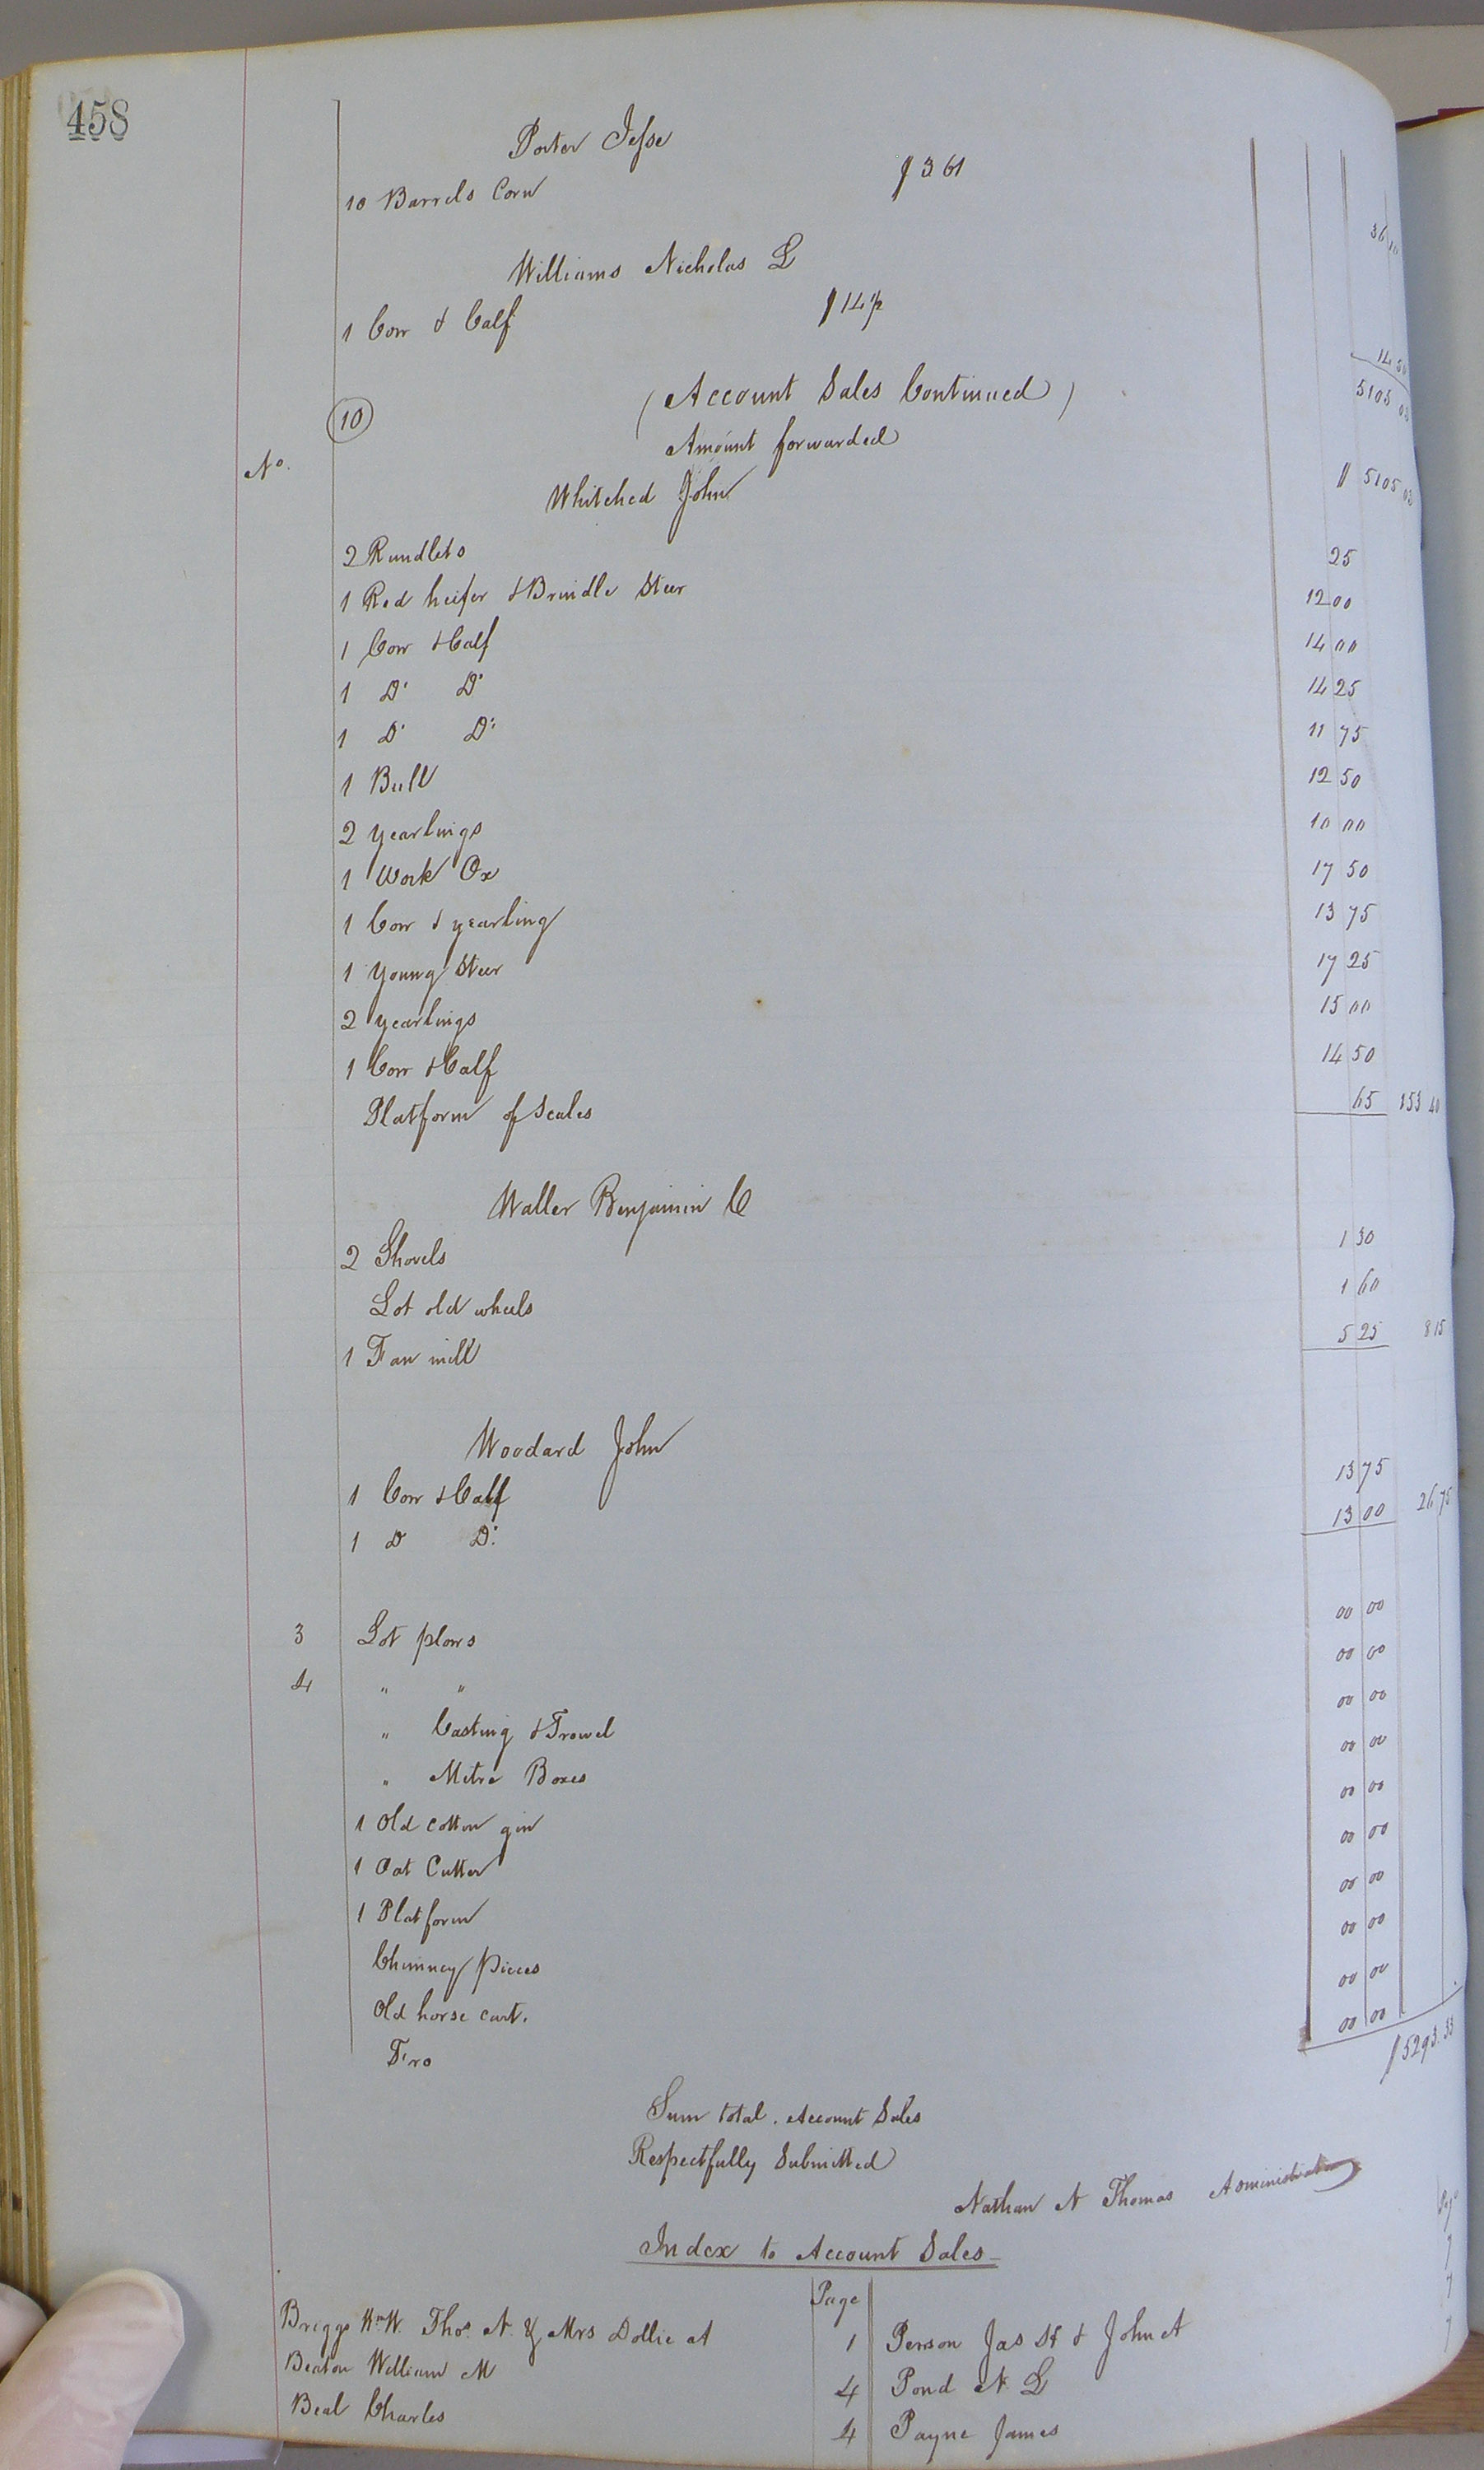 458
Porter Jesse
10 Barrels Corn $ 3 61 36 10
Williams Nicholas L
1 Cow & Calf $ 14 1/2 14 50
5105 03
10 (Account Sales Continued)
Amount forwarded $ 5105 03
No.
Whitehed John
2 Rundlets 25
1 Red heifer & Brindle Steer 12 00
1 Cow & Calf 14 00
1 Do Do 14 25
1 Do Do 11 75
1 Bull 12 50
2 yearlings 10 00
1 Work Ox 17 50
1 Cow & yearling 13 75
1 Young Steer 17 25
2 yearlings 15 00
1 Cow & Calf 14 50
Platform of Scales 65 153 40
Waller Benjamin C
2 Shovels 1 30
Lot old wheels 1 60
1 Fan mill 5 25 8 15
Woodard John
1 Cow & Calf 13 75
1 D Do 13 00 26 75
3 Lot plows 00 00
4 " " 00 00
" Casting & Trowel 00 00
" Metre Boxes 00 00
1 Old cotton gin 00 00
1 Oat Cutter 00 00
1 Platform 00 00
Chimney Pieces 00 00
Old horse cart. 00 00
00 00
Sum total. Account Sales $5293.33
Respectfully Submitted
Nathan N Thomas Administrator
Index to Account Sales
Page
Briggs Wm W. Thos. N. & Mrs Dollie A 1 Person Jas & John A
Beaton William M 4 Pond N. L
Beal Charles 4 Payne James